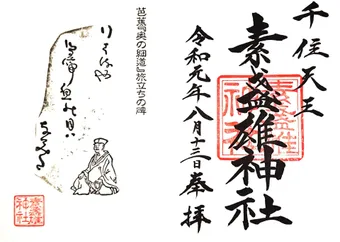 千住天王
素盞雄神社
令和元年八月十三日奉拝
芭蕉『奥の細道』旅立ちの碑
行はるや
鳥啼魚の目ハ
なみだ
素盞雄
神社